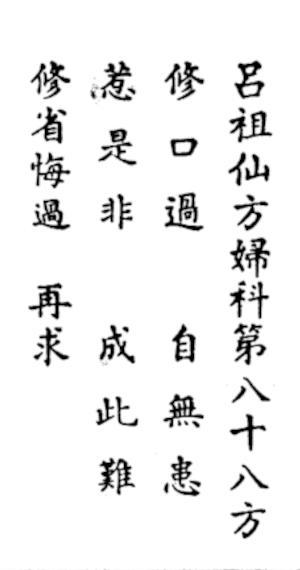 呂祖仙方婦科第八十八方
修口過　自無患
惹是非　成此難
修省悔過　再求